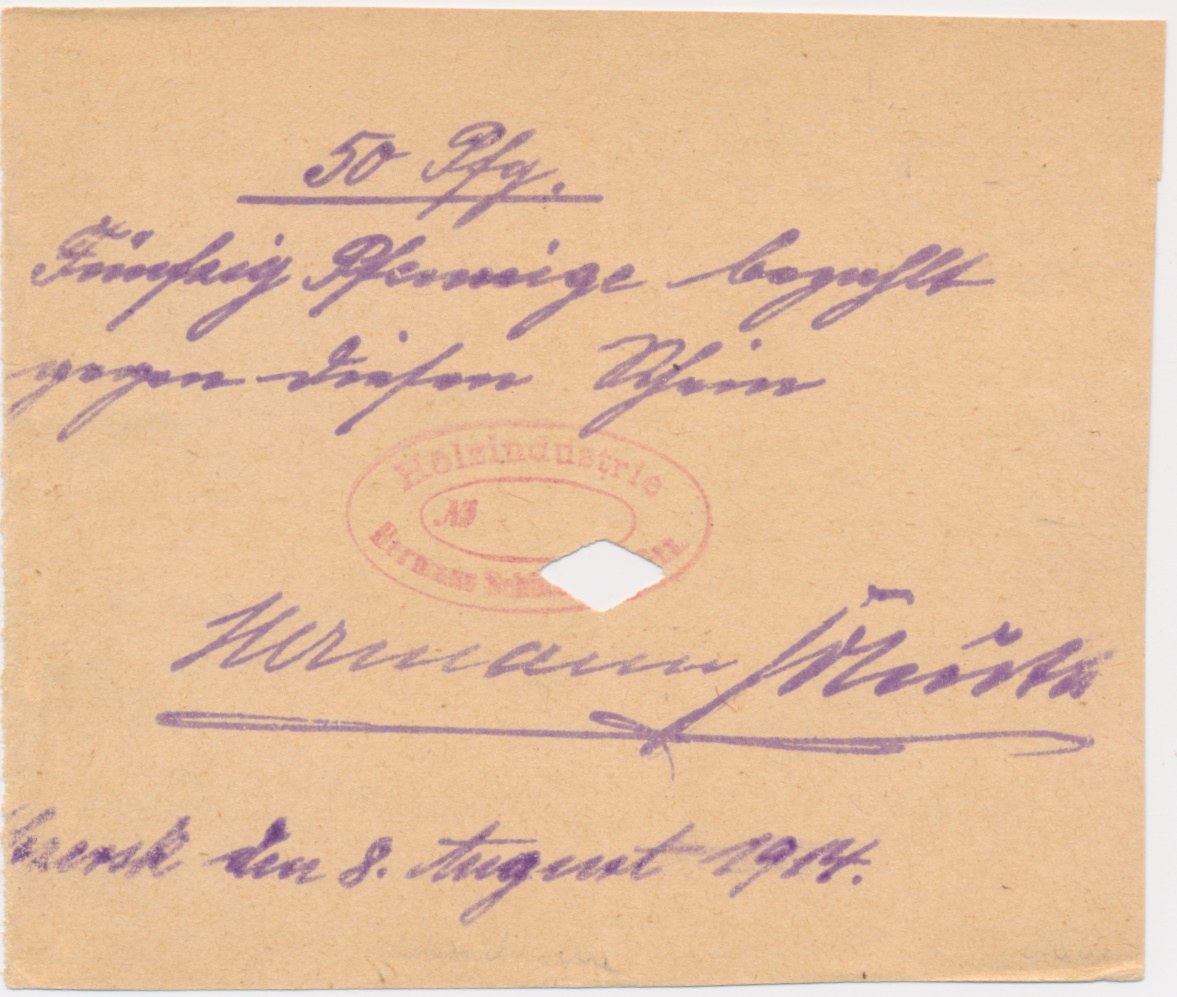 50 Pfg.
Fünfzig Pfennige bezahlt
gegen diesen Schein
Holzindustrie
No
Hermann
Hermann Schütt
den 8. August 1914.